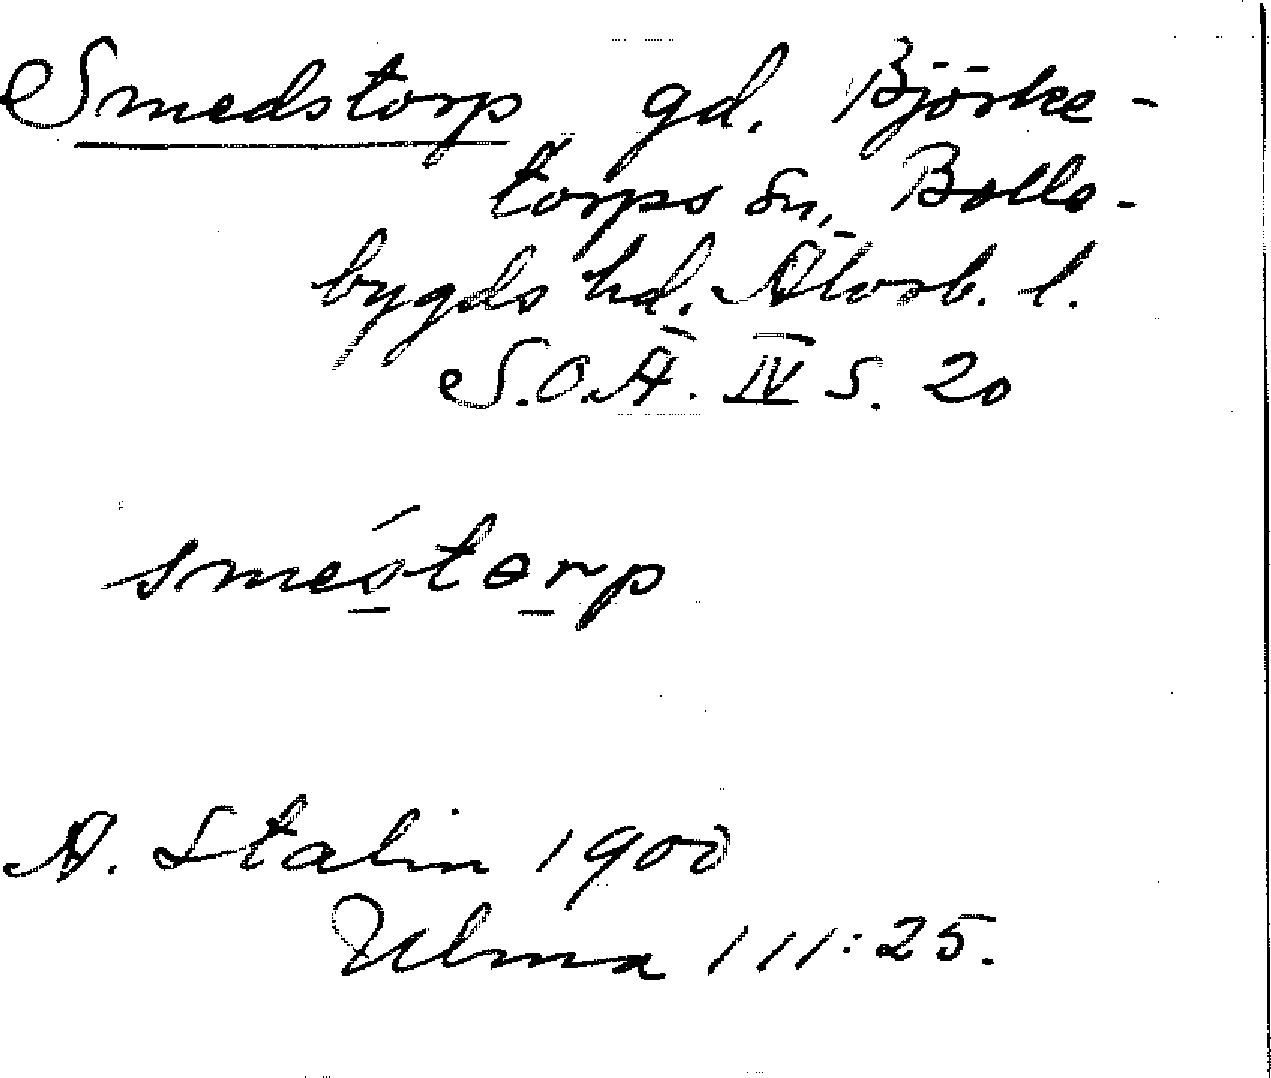 Smedstorp gd. Björke-
torps sn, Bolle-
bygds hd. Älvsb. l.
S.O.Ä. IV s. 20
sméstorp
A. Stalin 1900
Ulma 111:25.